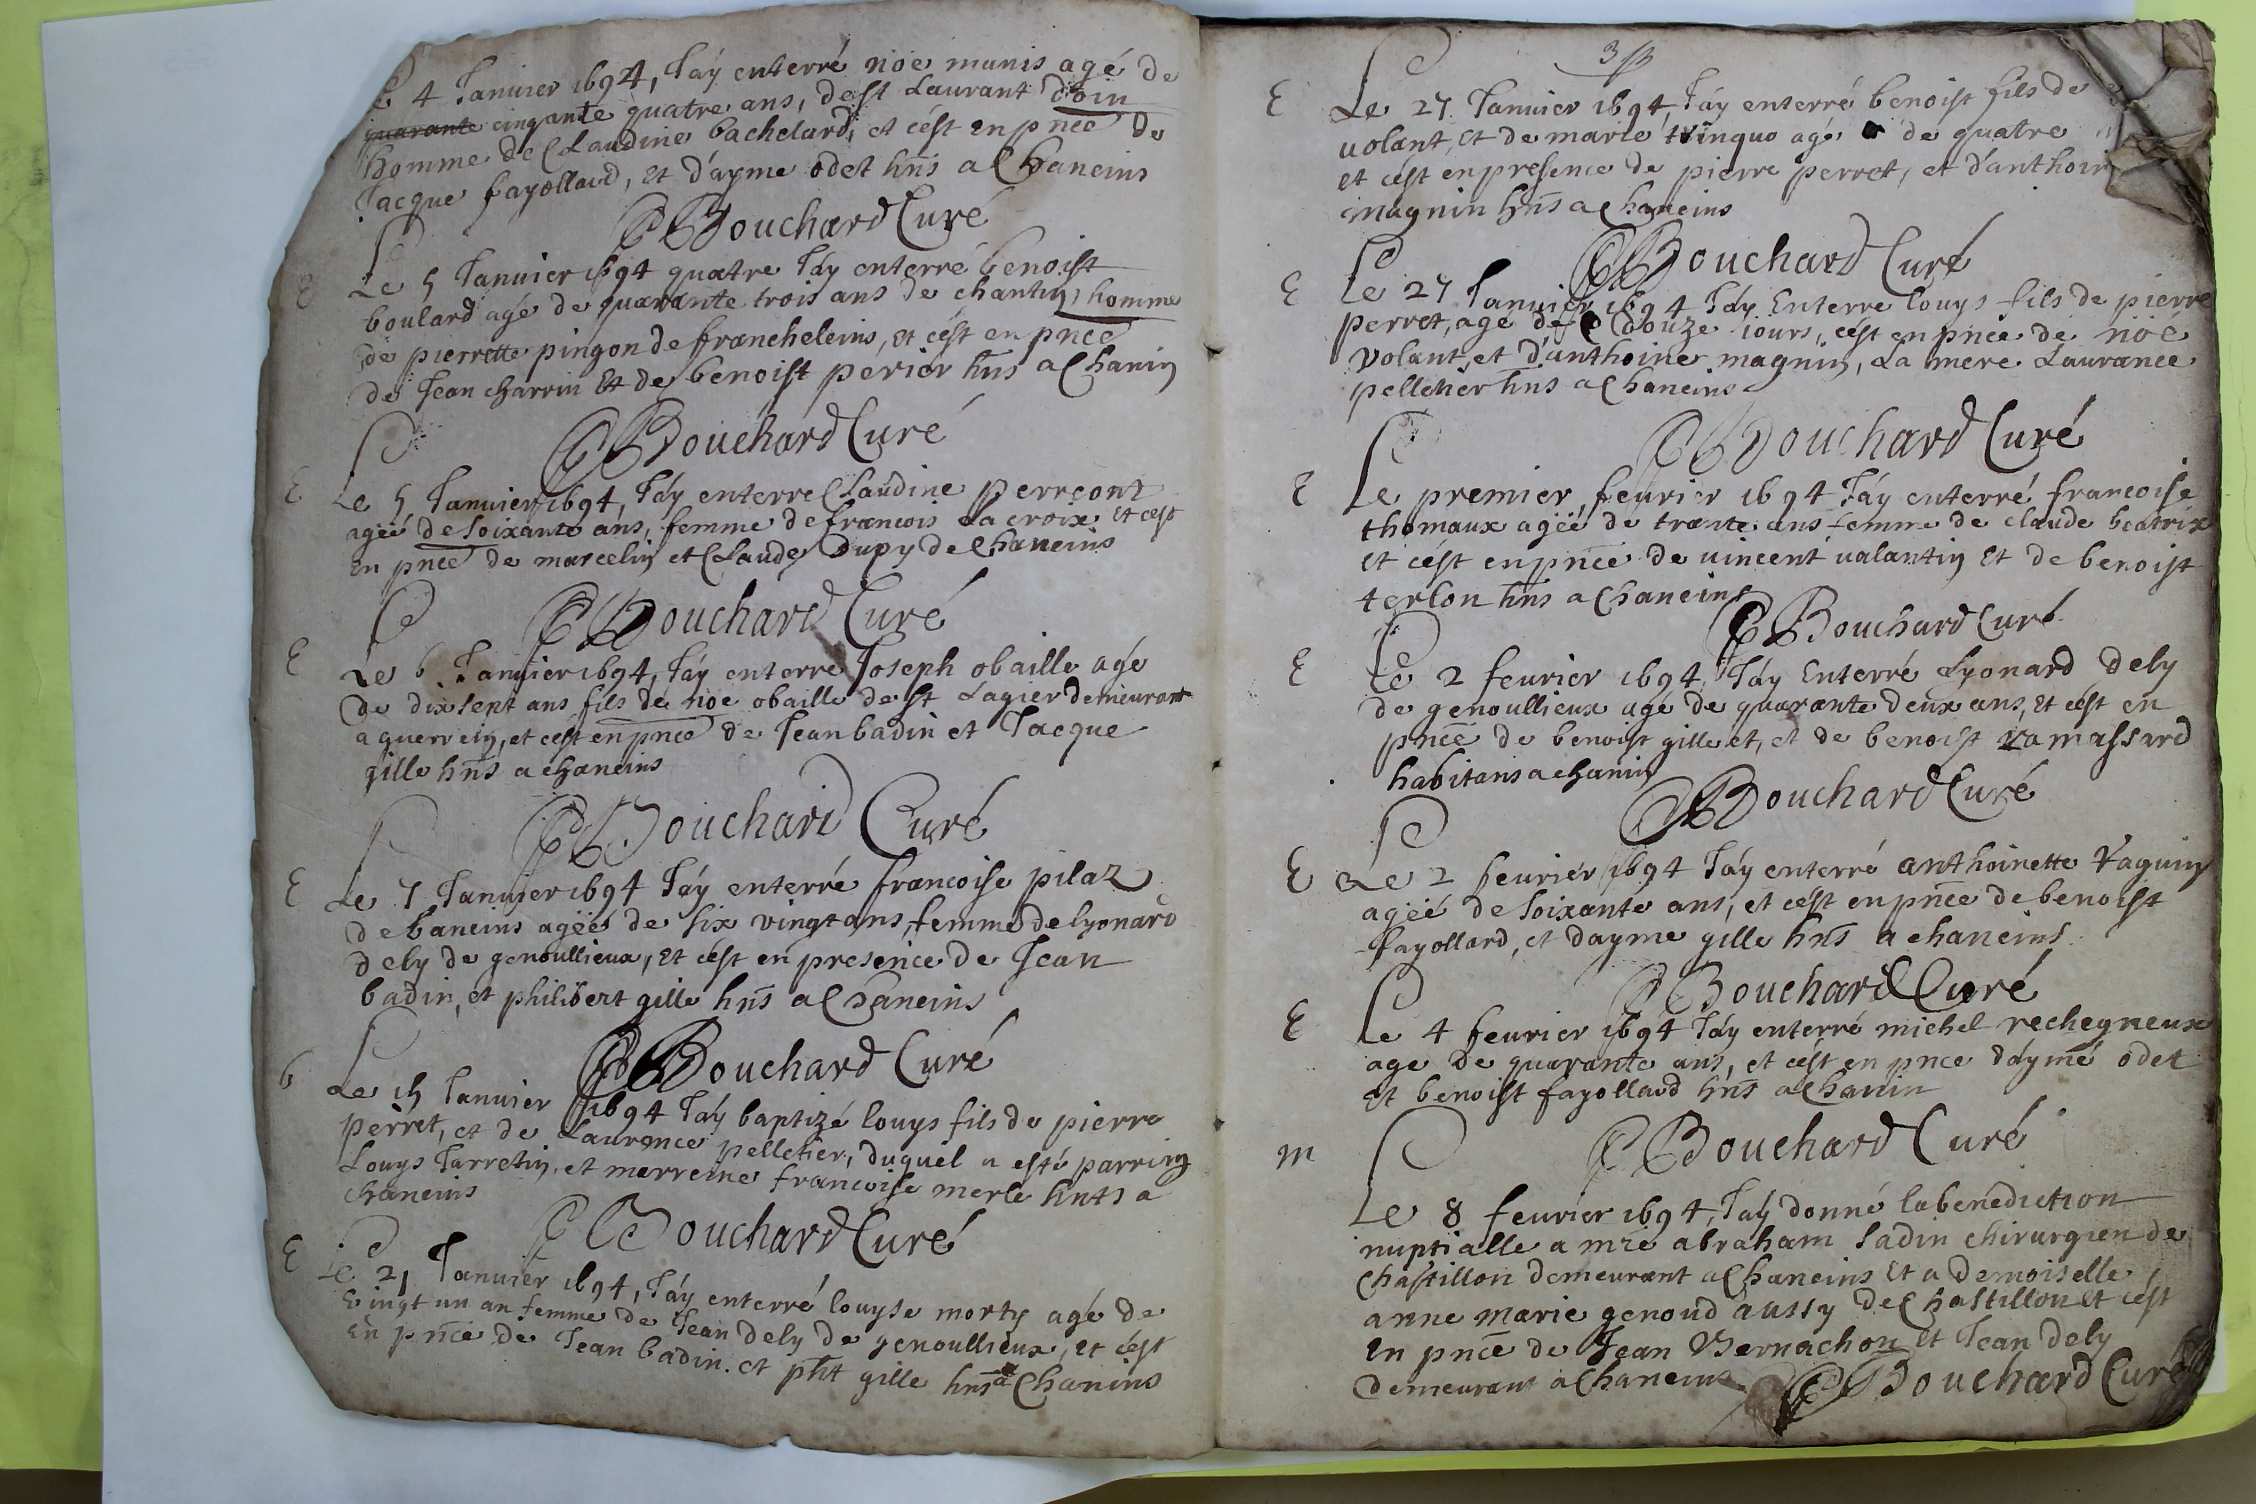 Le 4 Januier 1694, J'ay enterré noe munis agé de
quarante cinqante quatre ans, de st Laurant d'oin
homme de Claudine bachelard, et cést en pnce de
Jacque fayollard, et d'ayme odet hns a Chaneins
Bouchard Curé
E Le 5 Januier 1694 quatre J'ay enterré benoist
boulard agé de quarante trois ans de chantin, homme
de pierrette pingon de francheleins, et cést en pnce
de Jean charrin Et de benoist perier hns a Chanin
Bouchard Curé
E Le 5 Januier 1694, J'ay enterre Claudine perrçont
ageé de soixante ans, femme de francois La croix, Et cést
En pnce de marcelin et Claude Dupy de Chaneins
Bouchard Curé
E Le 6 Januier 1694, J'ay enterre Joseph obaille agé
De dix sept ans fils de noe obaille de st Lagier demeurant
a guerrein, et cést en pnce de Jean badin et Jacque
gille hns a chaneins
Bouchard Curé
E Le 7 Januier 1694 J'ay enterré francoise pilaz
de baneins ageéé de six vingt ans, femme de lyonard
dely de genoullieux, Et cést en presence de Jean
badin, et philibert gille hns a Chaneins
Bouchard Curé
b Le 15 Januier 1694 J'ay baptizé louys fils de pierre
perret, et de Laurance pelletier, duquel a esté parrin
Louys Jarretin, et marreine francoise merle hnts a
chaneins
Bouchard Curé
E Le 21 Januier 1694, J'ay enterré louyse morty agé de
Vingt un an femme de Jean dely de genoullieux, Et cést
En pnce de Jean badin. et pht gille hns a Chanins
3
E Le 27 Januier 1694, J'ay enterré benoist fils de
volant, Et de marie trinquo agé de quatre
Et cést en presence de pierre perret, et d'anthoin
magnin hns a Chaneins
Bouchard Curé
E Le 27 Januier 1694 J'ay Enterre louys fils de pierre
perret, agé de douze iours, cést en pnce de noé
Volant, et d'anthoine magnin, La mere Laurance
pelletier hns a Chaneins
Bouchard Curé
E Le premier feurier 1694 J'ay enterré francoise
thomaux ageé de trante ans femme de claude beatrix
Et cést en pnce de uincent ualantin Et de benoist
terlon hns a Chaneins
Bouchard Curé
E Le 2 feurier 1694 J'ay Enterré Lyonard Dely
de genoullieux agé de quarante deux ans, Et cést en
pnce de benoist gillet, et de benoist ramassard
habitans a chanin
Bouchard Curé
E Le 2 feurier 1694 J'ay enterré anthoinette Vaguin
ageé de soixante ans, et cést en pnce de benoist
fayollard, et dayme gille hns a chaneins
Bouchard Curé
E Le 4 feurier 1694 J'ay enterré michel rechegneux
age de quarante ans, et cést en pnce dáymé odet
Et benoist fayollard hns a Chanin
Bouchard Curé
m
Le 8 feurier 1694, J'ay donné la benediction
nuptialle a mre abraham Sadin chirurgien de
Chastillon demeurant a Chaneins Et a demoiselle
anne marie genoud aussy de Chastillon Et cést
En pnce de Jean Bernachon Et Jean dely
demeurans a Chaneins
Bouchard Curé